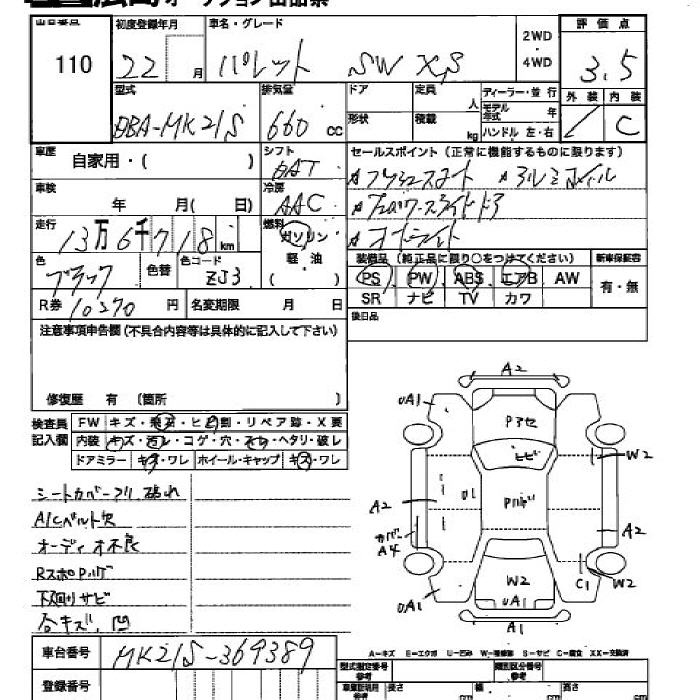 オークション出品票
出品番号 初度登録年月 車名・グレード 2WD ・ 4WD 評価点
110 22 月 パレット SW XS 3.5
型式 排気量 ドア 定員 人 ディーラー・並行 外装 内装
DBA-MK21S 660 cc 形状 積載 kg モデル年式 年 ハンドル 左・右 C
車歴 自家用・( ) シフト セールスポイント(正常に機能するものに限ります)
車検 年 月( 日) 冷房 AAC
☆アルミホイル
走行 13万6千718km 燃料 ガソリン 軽油
☆オートライト
色 ブラック 色替 色コード ZJ3
装備品(純正品に限り○をつけてください) 新車保証書
PS PW ABS エアB AW 有・無
SR ナビ TV カワ
R券 10270 円 名変期限 月 日
後日品
注意事項申告欄(不具合内容等は具体的に記入して下さい)
修復歴 有 (箇所 )
検査員記入欄
FW キズ・飛石・ヒビ割・リペア跡・X要
内装 キズ・汚レ・コゲ・穴・スレ・ヘタリ・破レ
ドアミラー キズ・ワレ ホイール・キャップ キズ・ワレ
シートカバー
A/Cベルト欠
オーディオ不良
RスポPハゲ
下廻りサビ
各キズ、凹
A2
UA1
Pアセ
ヒビ
W2
A2
U1
Pハゲ
A2
カバーA4
W2
C1
W2
UA1
UA1
A1
A-キズ E-エクボ U-凹み W-補修跡 S-サビ C-腐食 XX-交換済
車台番号 MK21S-369389
登録番号
型式指定番号参考 類別区分番号参考
長さ 幅 高さ